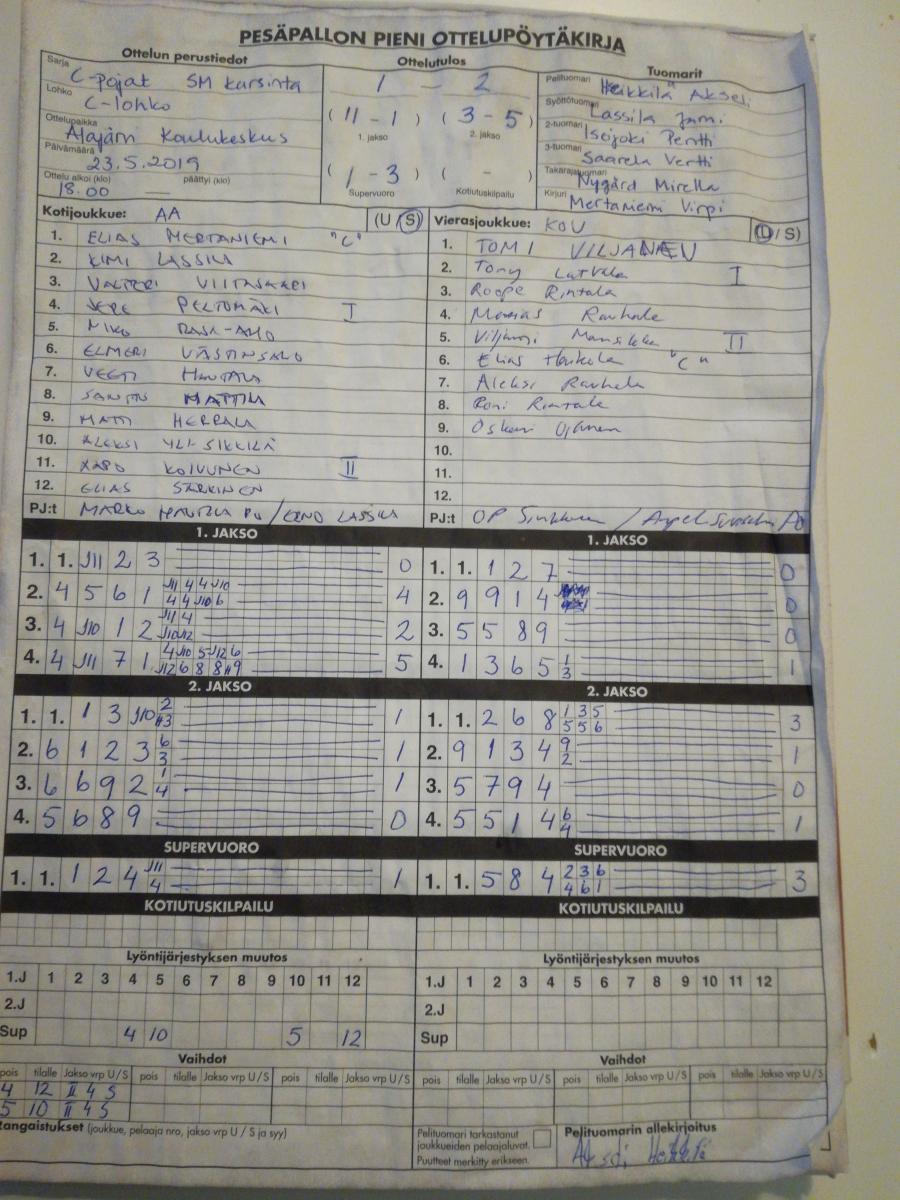 PESÄPALLON PIENI OTTELUPÖYTÄKIRJA
Ottelun perustiedot Ottelutulos Tuomarit
Sarja C-pojat SM karsinta 1 - 2 Pelituomari Heikkilä Akseli
Lohko C-lohko (11 - 1) (3 - 5) Syöttötuomari Lassila Jami
1. jakso 2. jakso
Ottelupaikka Alajärvi Koulukeskus 2-tuomari Isojoki Pentti
Päivämäärä 23.5.2019 3-tuomari Saarela Vertti
Ottelu alkoi (klo) 18.00 — päättyi (klo) (1 - 3) ( - ) Takarajatuomari Nygård Mirella
Supervuoro Kotiutuskilpailu Kirjuri Mertaniemi Virpi
Kotijoukkue: AA (U/S) Vierasjoukkue: KOU (U/S)
1. ELIAS MERTANIEMI "C" 1. TOMI VILJANEN
2. KIMI LASSILA 2. Tony Latvala I
3. VALTTERI VIITASAARI 3. Roope Rintala
4. JERE PELTOMÄKI I 4. Rauhala
5. NIKO 5. Viljami II
6. ELMERI VÄSTINSALO 6. Elias "C"
7. VEETI HAUTALA 7. Aleksi Rauhala
8. SANTTU MATTILA 8. Roni Rintala
9. MATTI HERRALA 9. Oskari Ojanen
10. ALEKSI YLI-SIKKILÄ 10.
11. AAPO KOIVUNEN II 11.
12. ELIAS SÄRKINEN 12.
PJ:t MARKO HAUTALA / EINO LASSILA PJ:t OP /
1. JAKSO 1. JAKSO
1. 1. J11 2 3 0 1. 1. 1 2 7 0
2. 4 5 6 1 J11 4 4 J10 4 2. 9 9 1 4 0
4 4 J10 6
3. 4 J10 1 2 J11 4 2 3. 5 5 8 9 0
J10 J12
4. 4 J11 7 1 4 J10 5 J12 6 5 4. 1 3 6 5 1 1
J12 6 8 8 9 3
2. JAKSO 2. JAKSO
1. 1. 1 3 J10 2 1 1. 1. 2 6 8 1 3 5 3
3 5 5 6
2. 6 1 2 3 6 1 2. 9 1 3 4 9 1
3 2
3. 6 6 9 2 1 1 3. 5 7 9 4 0
4
4. 5 6 8 9 0 4. 5 5 1 4 6 1
4
SUPERVUORO SUPERVUORO
1. 1. 1 2 4 J11 1 1. 1. 5 8 4 2 3 6 3
4 4 6 1
KOTIUTUSKILPAILU KOTIUTUSKILPAILU
Lyöntijärjestyksen muutos Lyöntijärjestyksen muutos
1.J 1 2 3 4 5 6 7 8 9 10 11 12 1.J 1 2 3 4 5 6 7 8 9 10 11 12
2.J 2.J
Sup 4 10 5 12 Sup
Vaihdot Vaihdot
pois tilalle Jakso vrp U/S pois tilalle Jakso vrp U/S pois tilalle Jakso vrp U/S pois tilalle Jakso vrp U/S pois tilalle Jakso vrp U/S pois tilalle Jakso vrp U/S
4 12 II 4 S
5 10 II 4 S
Rangaistukset (joukkue, pelaaja nro, jakso vrp U / S ja syy) Pelituomari tarkastanut joukkueiden pelaajaluvat. Pelituomarin allekirjoitus
Puutteet merkitty erikseen.